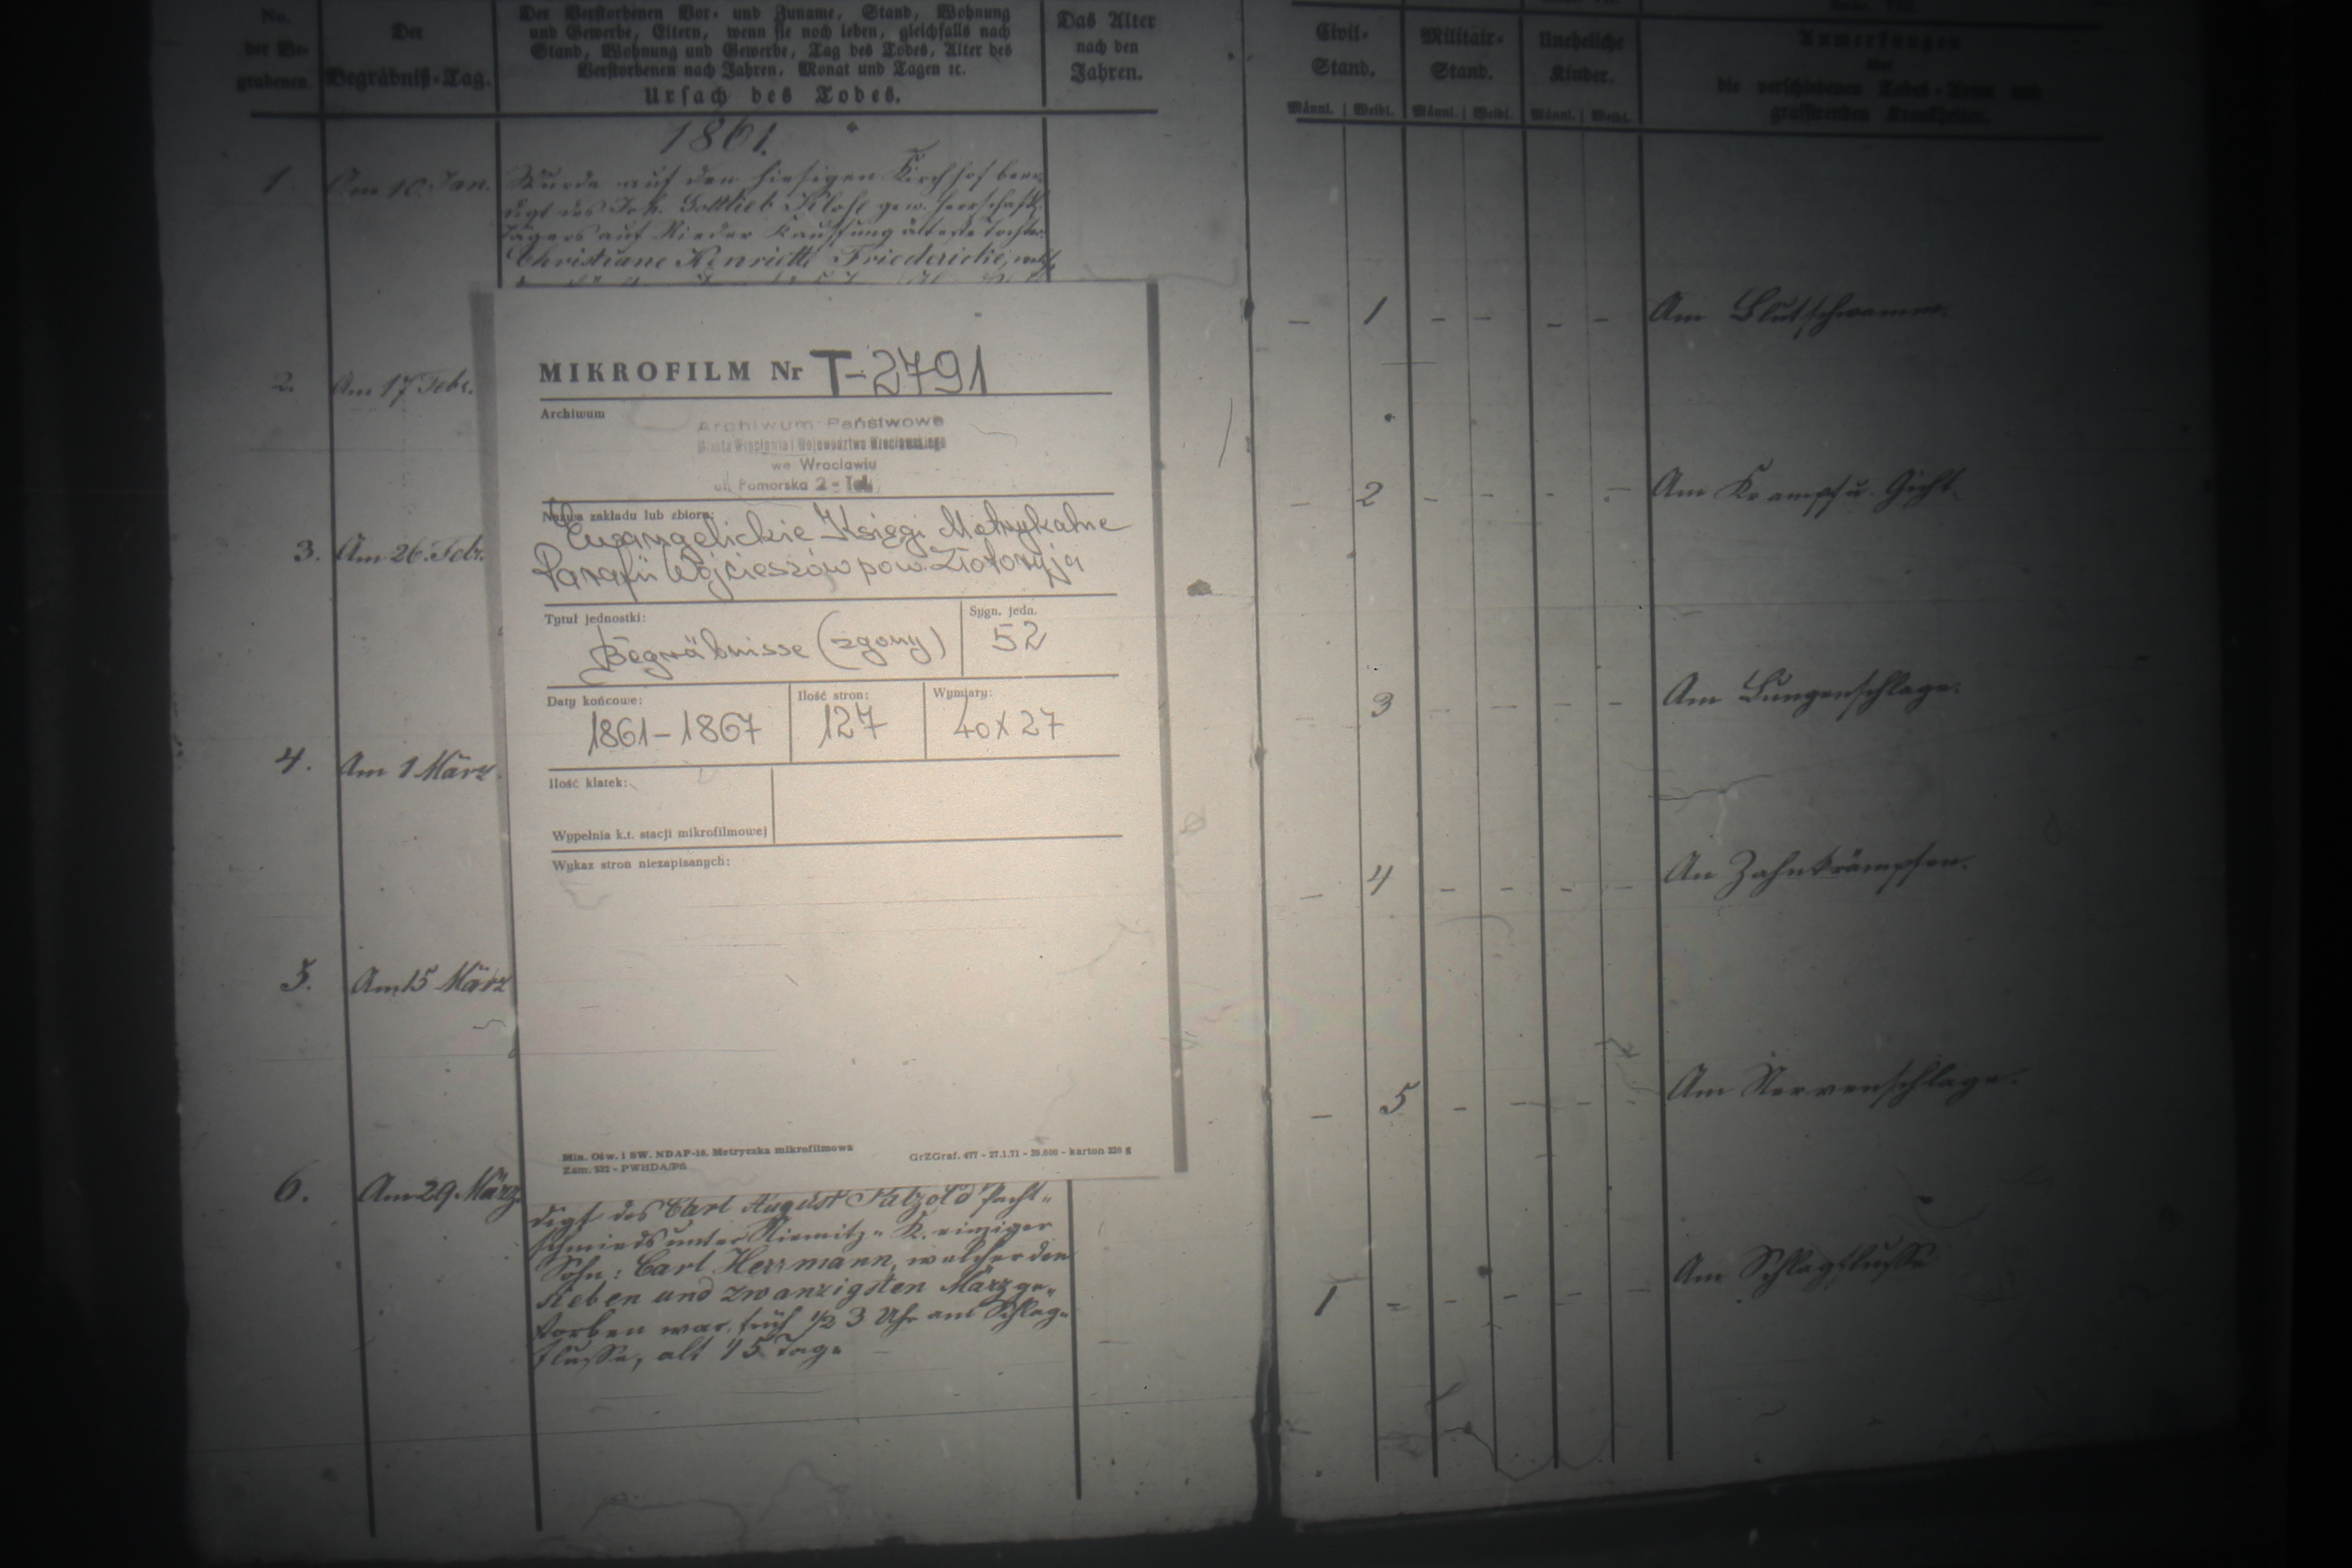 No.
der Be-
grabenen.
Der
Begräbniß-Tag.
Der Verstorbenen Vor- und Zuname, Stand, Wohnung
und Gewerbe, Eltern, wenn sie noch leben, gleichfalls nach
Stand, Wohnung und Gewerbe, Tag des Todes, Alter des
Verstorbenen nach Jahren, Monat und Tagen ꝛc.
Ursach des Todes.
Das Alter
nach den
Jahren.
1861.
1. Am 10. Jan.
Wurde auf den hiesigen Kirchhof beer-
digt des Joh. Gottlieb Klose gew. herrschaftl.
Jägers auf Nieder Kauffung älteste Tochter
Christiane Henriette Friedericke,
2. Am 17 Febr.
3. Am 26. Febr.
4. Am 1 März
5. Am 15 März
6. Am 29. März
MIKROFILM Nr T-2791
Archiwum
Archiwum Państwowe
Miasta Wrocławia i Województwa Wrocławskiego
we Wrocławiu
ul. Pomorska 2 - Tel.
Nazwa zakładu lub zbioru:
Ewangelickie Księgi Metrykalne
Parafii Wojcieszów pow. Złotoryja
Tytuł jednostki:
Begräbnisse (zgony)
Sygn. jedn.
52
Daty końcowe:
1861-1867
Ilość stron:
127
Wymiary:
40x27
Ilość klatek:
Wypełnia k.t. stacji mikrofilmowej
Wykaz stron niezapisanych:
Min. Ośw. i SW. NDAP-18. Metryczka mikrofilmowa
Zam. 522 - PWHDA/Pń
GrZGraf. 477 - 27.1.71 - 20.000 - karton 220 g
digt des Carl August Pätzold Pacht-
schmieds unter Niemitz-K. einziger
Sohn: Carl Herrmann, welcher den
sieben und zwanzigsten März ge-
storben war, früh 1/2 3 Uhr am Schlag-
flusse, alt 15 Tage
Civil-
Stand.
Männl. | Weibl.
Militair-
Stand.
Männl. | Weibl.
Uneheliche
Kinder.
Männl. | Weibl.
Anmerkungen
über
die verschiedenen Todes-Arten und
grassirenden Krankheiten.
– 1 – – – – Am Blutschwamm.
– 2 – – – – Am Krampf u. Gicht.
– 3 – – – – Am Lungenschlage.
– 4 – – – – An Zahnkrämpfen.
– 5 – – – – Am Nervenschlage.
1 – – – – – Am Schlagflusse